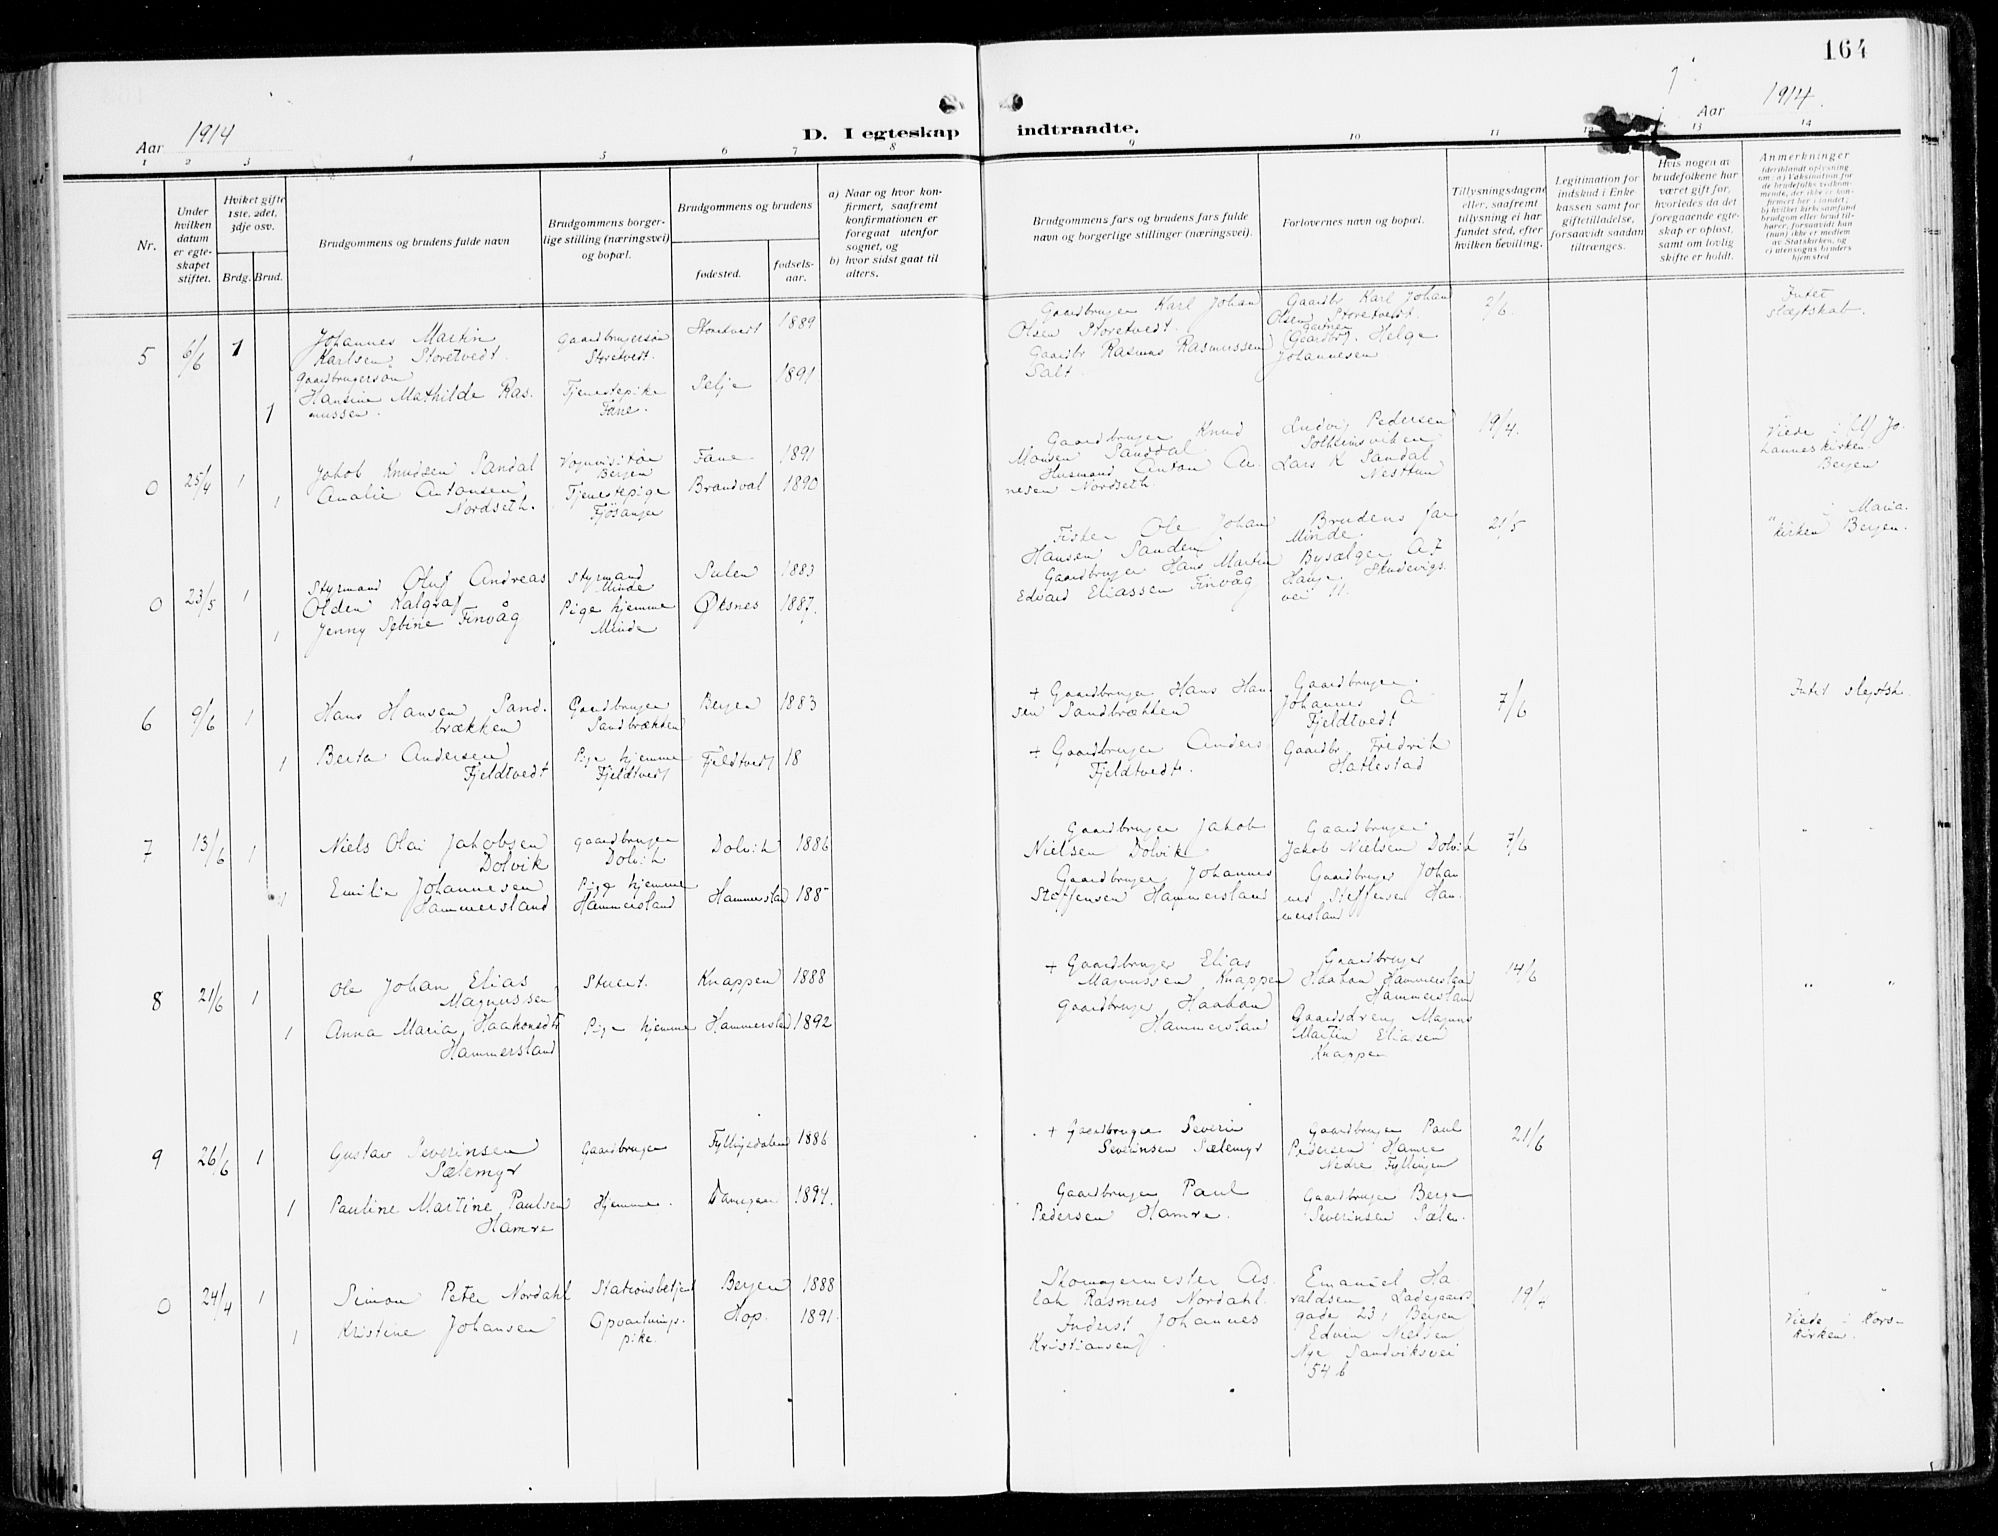 164
Aar 1914
D. I egteskap indtraadte.
Aar 1914.
1 2 3 4 5 6 7 8 9 10 11 12 13 14
Nr.
Under hvilken datum er egteskapet stiftet.
Hvilket gifte 1ste, 2det, 3dje osv.
Brdg. Brud.
Brudgommens og brudens fulde navn
Brudgommens borgerlige stilling (næringsvei) og bopæl.
Brudgommens og brudens
fødested.
fødselsaar.
a) Naar og hvor konfirmert, saafremt konfirmationen er foregaat utenfor sognet, og
b) hvor sidst gaat til alters.
Brudgommens fars og brudens fars fulde navn og borgerlige stillinger (næringsvei).
Forlovernes navn og bopæl.
Tillysningsdagene eller, saafremt tillysning ei har fundet sted, efter hvilken bevilling.
Legitimation for indskud i Enkekassen samt for giftetilladelse, forsaavidt saadan tiltrænges.
Hvis nogen av brudefolkene har været gift før, hvorledes da det foregaaende egteskap er opløst, samt om lovlig skifte er holdt.
Anmerkninger
5 6/6 1
Johannes Martin
Karlsen Storetvedt.
Gaardbrugersøn
Gaardbrugersøn
Storetvedt.
Storetvedt 1889
Gaardbruger Karl Johan
Olsen Storetvedt.
Gaardbr Karl Johan
Olsen Storetvedt.
2/6.
Intet
slegtskab.
1
Hansine Mathilde Ras-
mussen.
Tjenestepike
Fane.
Selje 1891
Gaardbr Rasmus Rasmussen
Salt.
gartner
(Gaardbr). Helge
Johannesen
0 25/4 1
Jakob Knudsen Sandal
Vognvisitør
Bergen
Fane 1891
Gaardbruger Knud
Monsen Sanddal
Ludvig Pedersen
Solheimsviken
19/4.
Viede i St Jo-
hanneskirken
Bergen
1
Amalie Antonsen
Nordseth.
Tjenestepige
Fjøsanger
Brandval 1890
Husmand Anton An-
nesen Nordseth.
Lars K Sandal
Nesttun
0 23/5 1
Styrmand Oluf Andreas
Olden Kalgraf
Styrmand
Minde
Sulen 1883
Fisker Ole Johan
Hansen Sanden
Brudens far
Minde.
21/5
" i Maria-
kirken Bergen.
1
Jenny Sebine Finvåg
Pige hjemme
Minde
Øksnes 1887.
Gaardbruger Hans Martin
Edvard Eliassen Finvåg
Bysælger A F
Hauge. Skudevigs
vei 11.
6 9/6 1
Hans Hansen Sand-
brækken
Gaardbruger
Sandbrækken
Bergen 1883
+ Gaardbruger Hans Han-
sen Sandbrækken
Gaardbruger
Johannes A
Fjeldtvedt
7/6
Intet slegtsk.
1
Berta Andersen
Fjeldtvedt
Pige hjemme
Fjeldtvedt
Fjeldtvedt 18
+ Gaardbruger Anders
Fjeldtvedt.
Gaardbr. Fredrik
Hatlestad
7 13/6 1
Niels Olai Jakobsen
Dolvik
gaardbruger
Dolvik
Dolvik 1886
Gaardbruger Jakob
Nielsen Dolvik
Gaardbruger
Jakob Nielsen Dolvik
7/6
" "
1
Emilie Johannesen
Hammersland
Pige hjemme
Hammersland
Hammersland 188
Gaardbruger Johannes
Steffensen Hammersland
Gaardbruger Johan
nes Steffensen Ham-
mersland
8 21/6 1
Ole Johan Elias
Magnussen
Stuert.
Knappen 1888
+ Gaardbruger Elias
Magnussen Knappen
Gaardbruger
Haakon Hammersland
Hammersland
14/6
" "
1
Anna Maria Haakonsdtr
Hammersland
Pige hjemme
Hammersland 1892
Gaardbruger Haakon
Hammersland
Gaardsdreng Magnus
Martin Eliasen
Knappen
9 26/6 1
Gustav Severinsen
Sælemyr
Gaardbruger
Fyllingsdalen 1886
+ Gaardbruger Severin
Severinsen Sælemyr
Gaardbruger Paul
Pedersen Hamre
Nedre Fyllingen
21/6
1
Pauline Martine Paulsen
Hamre
Hjemme.
Damsgaar 1894.
Gaardbruger Paul
Pedersen Hamre.
Gaardbruger Berge
Severinsen Sælen.
0 24/4 1
Simon Peter Nordahl
Stationsbetjent
Bergen 1888
Skomagermester As-
lak Rasmus Nordahl.
Emanuel Ha-
raldsen Ladegaards
gade 23, Bergen
19/4
" "
Viede i Kors-
kirken.
1
Kristine Johansen
Opvartnings-
pike.
Hop. 1891.
Inderst Johannes
Kristiansen.
Edvin Nielsen
Nye Sandviksvei
54 b